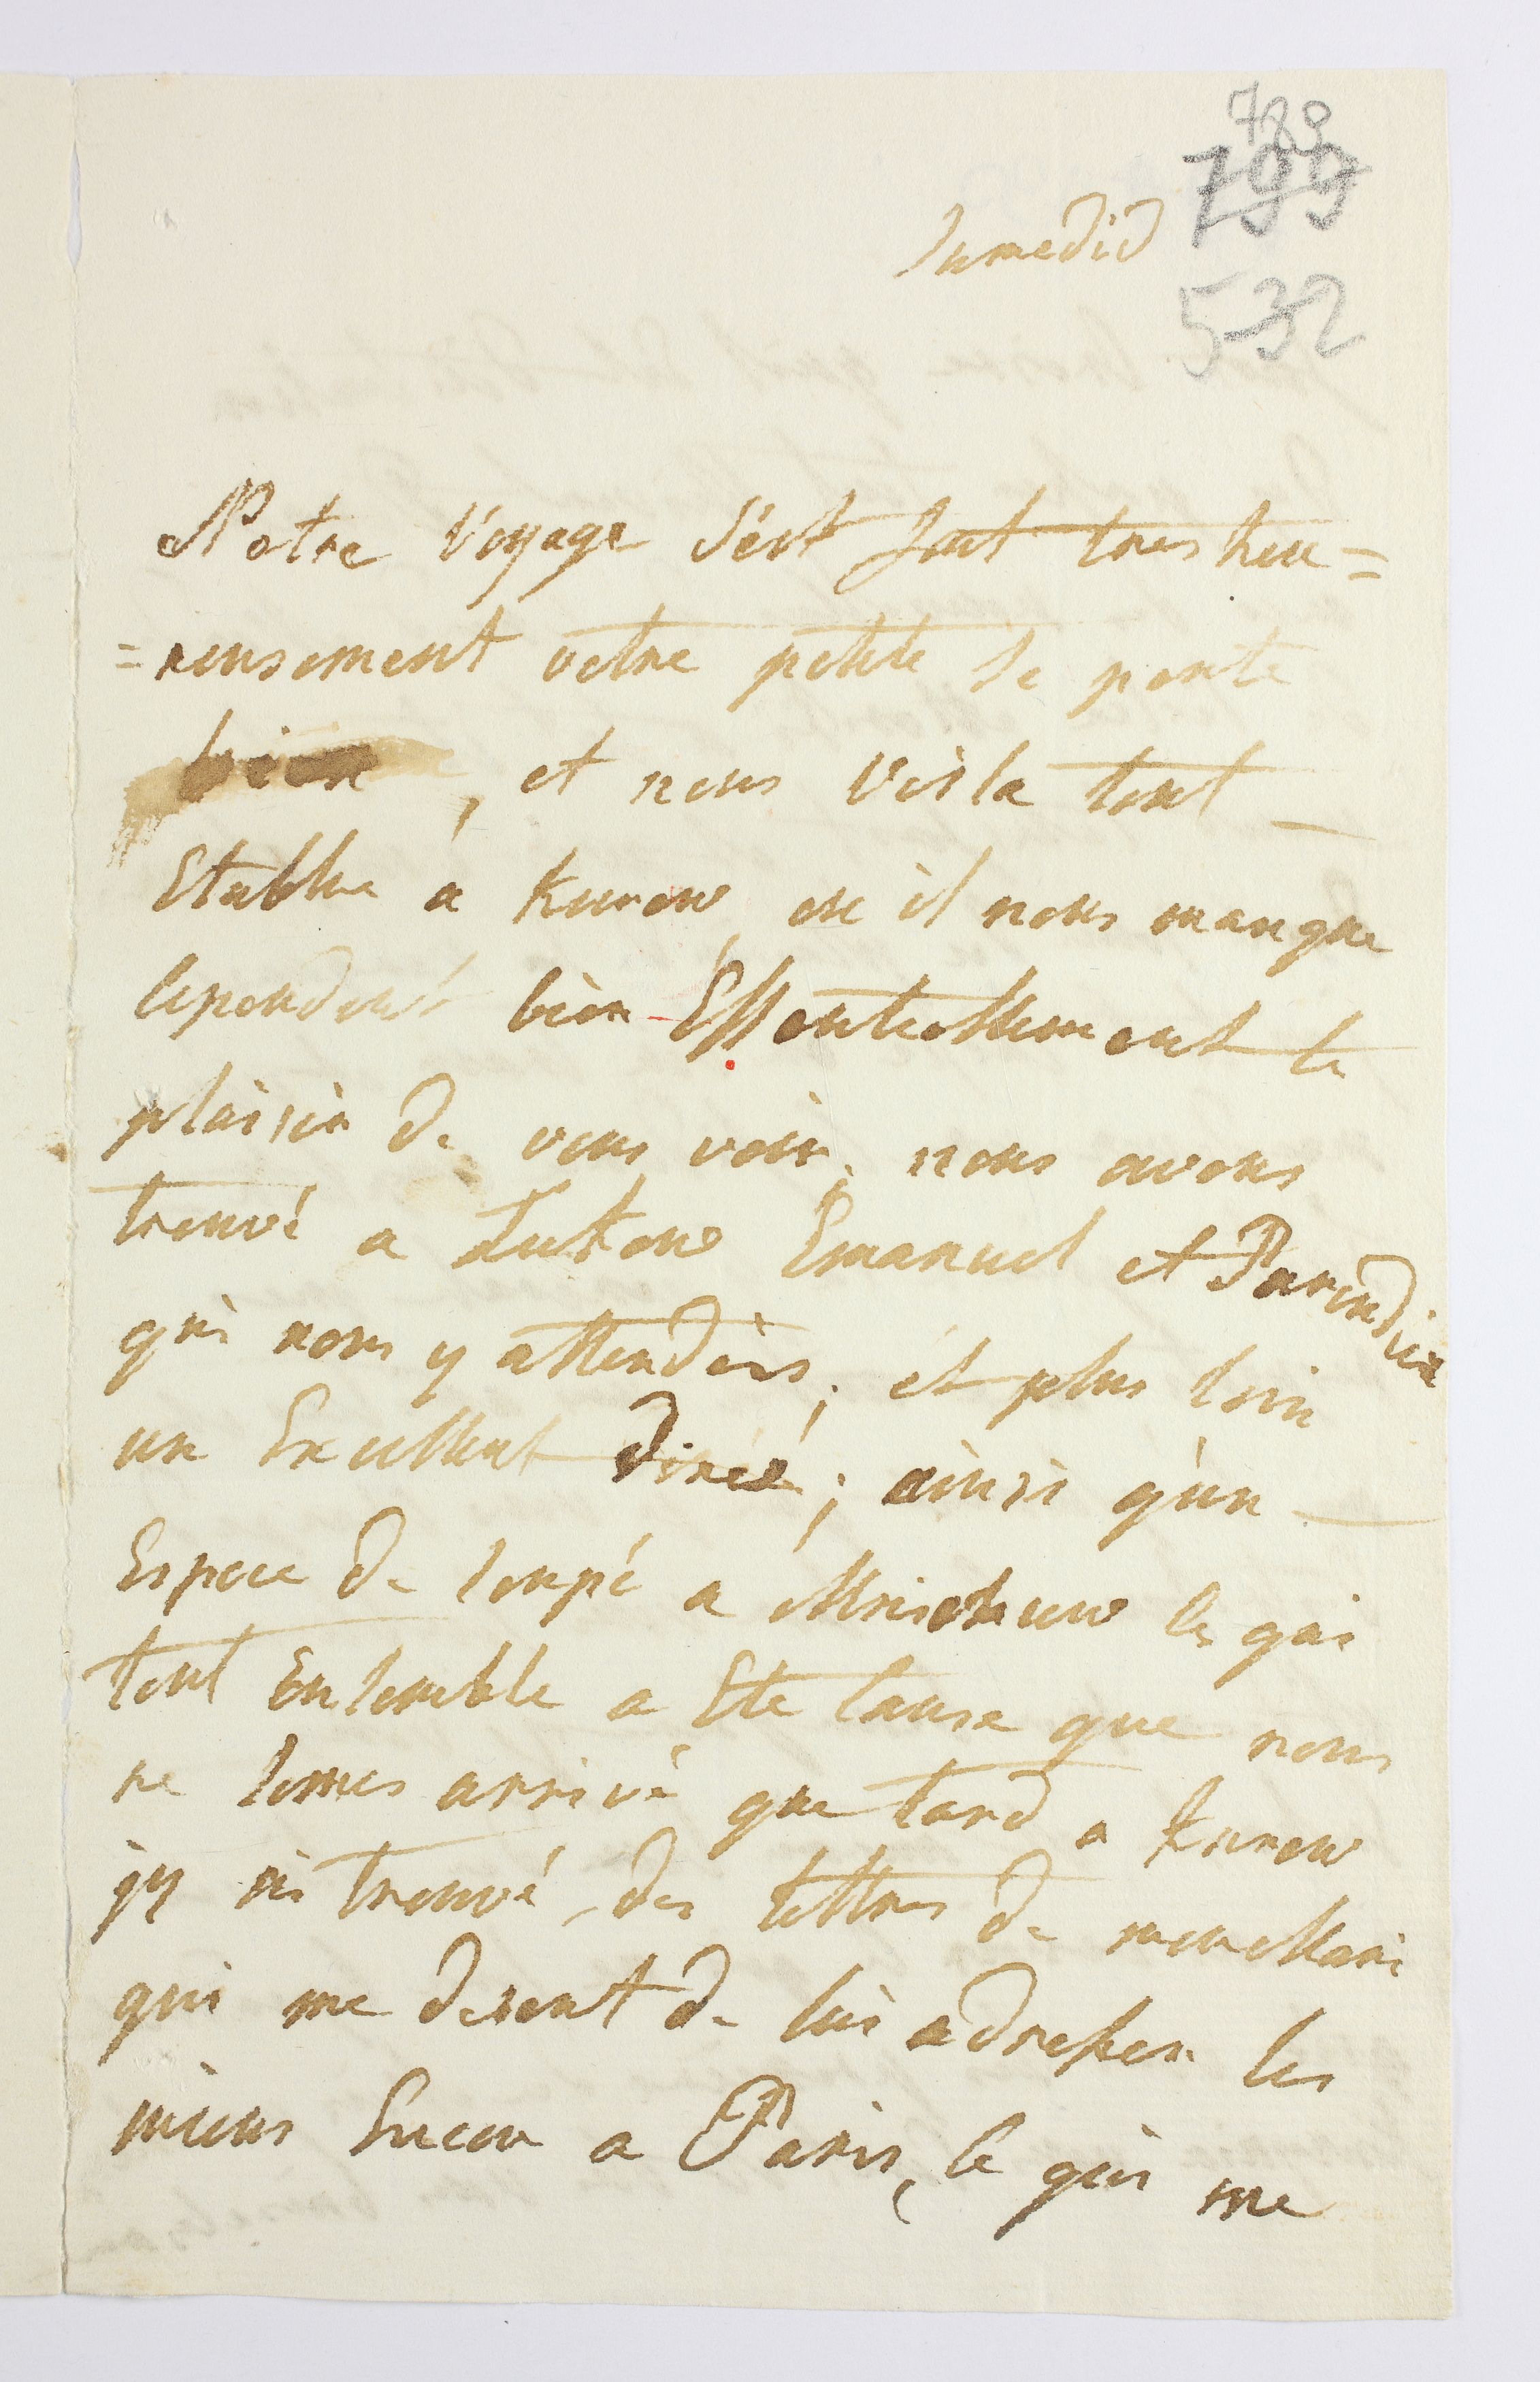 789
799
532
Samedid
Notre Voyage s'est fait tres heu=
=reusement votre petite se porte
bien, et nous voila tout
Etablie a Kurow, ou il nous manque
cependent bien Essentiellement le
plaisir de vous voir. nous avons
trouvé a Lutow Emanuel et
qui nous y attendois, et plus loin
un Excellent diner; ainsi q'un
Espece de soupé a ce qui
tout Ensemble a Ete cause que nous
ne somes arrivé que tard a Kurow
jy ai trouvé, des lettres de mon Mari
qui me disent de lui adresser les
miens Encor a Paris, ce qui me